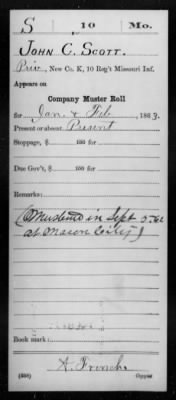 S 10 Mo.
JOHN C. SCOTT.
Priv., New Co. K, 10 Reg't Missouri Inf.
Appears on
Company Muster Roll
for Jan. & Feb, 1863.
Present or absent Present
Stoppage, $ 100 for
Due Gov't, $ 100 for
Remarks:
(Mustered in Sept 5.62
at Macon City)
Book mark:
Copyist